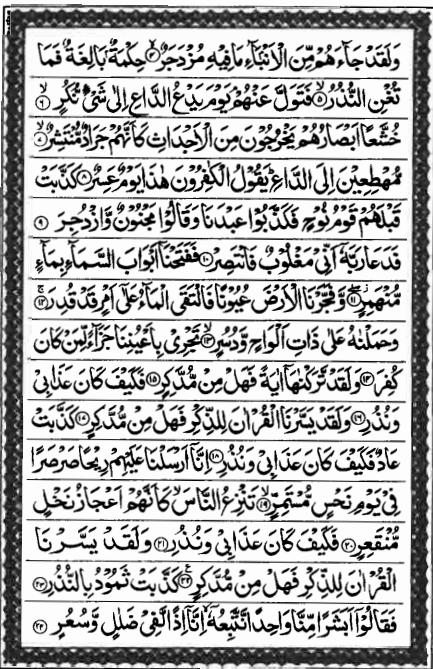 وَلَقَدْ جَآءَهُمْ مِّنَ الْاَنْۢبَآءِ مَا فِیْهِ مُزْدَجَرٌ ۙ﴿۴﴾ حِكْمَةٌۢ بَالِغَةٌ فَمَا
تُغْنِ النُّذُرُ ۙ﴿۵﴾ فَتَوَلَّ عَنْهُمْ ۘ یَوْمَ یَدْعُ الدَّاعِ اِلٰی شَیْءٍ نُّكُرٍ ۙ﴿۶﴾
خُشَّعًا اَبْصَارُهُمْ یَخْرُجُوْنَ مِنَ الْاَجْدَاثِ كَاَنَّهُمْ جَرَادٌ مُّنْتَشِرٌ ۙ﴿۷﴾
مُّهْطِعِیْنَ اِلَی الدَّاعِ ؕ یَقُوْلُ الْكٰفِرُوْنَ هٰذَا یَوْمٌ عَسِرٌ ﴿۸﴾ كَذَّبَتْ
قَبْلَهُمْ قَوْمُ نُوْحٍ فَكَذَّبُوْا عَبْدَنَا وَقَالُوْا مَجْنُوْنٌ وَّازْدُجِرَ ﴿۹﴾
فَدَعَا رَبَّهٗۤ اَنِّیْ مَغْلُوْبٌ فَانْتَصِرْ ﴿۱۰﴾ فَفَتَحْنَاۤ اَبْوَابَ السَّمَآءِ بِمَآءٍ
مُّنْهَمِرٍ ﴿۱۱﴾ وَّفَجَّرْنَا الْاَرْضَ عُیُوْنًا فَالْتَقَی الْمَآءُ عَلٰۤی اَمْرٍ قَدْ قُدِرَ ۚ﴿۱۲﴾
وَحَمَلْنٰهُ عَلٰی ذَاتِ اَلْوَاحٍ وَّدُسُرٍ ۙ﴿۱۳﴾ تَجْرِیْ بِاَعْیُنِنَا جَزَآءً لِّمَنْ كَانَ
كُفِرَ ﴿۱۴﴾ وَلَقَدْ تَّرَكْنٰهَاۤ اٰیَةً فَهَلْ مِنْ مُّدَّكِرٍ ﴿۱۵﴾ فَكَیْفَ كَانَ عَذَابِیْ
وَنُذُرِ ﴿۱۶﴾ وَلَقَدْ یَسَّرْنَا الْقُرْاٰنَ لِلذِّكْرِ فَهَلْ مِنْ مُّدَّكِرٍ ﴿۱۷﴾ كَذَّبَتْ
عَادٌ فَكَیْفَ كَانَ عَذَابِیْ وَنُذُرِ ﴿۱۸﴾ اِنَّاۤ اَرْسَلْنَا عَلَیْهِمْ رِیْحًا صَرْصَرًا
فِیْ یَوْمِ نَحْسٍ مُّسْتَمِرٍّ ۙ﴿۱۹﴾ تَنْزِعُ النَّاسَ ۙ كَاَنَّهُمْ اَعْجَازُ نَخْلٍ
مُّنْقَعِرٍ ﴿۲۰﴾ فَكَیْفَ كَانَ عَذَابِیْ وَنُذُرِ ﴿۲۱﴾ وَلَقَدْ یَسَّرْنَا
الْقُرْاٰنَ لِلذِّكْرِ فَهَلْ مِنْ مُّدَّكِرٍ ﴿۲۲﴾ كَذَّبَتْ ثَمُوْدُ بِالنُّذُرِ ﴿۲۳﴾
فَقَالُوْۤا اَبَشَرًا مِّنَّا وَاحِدًا نَّتَّبِعُهٗۤ ۙ اِنَّاۤ اِذًا لَّفِیْ ضَلٰلٍ وَّسُعُرٍ ﴿۲۴﴾